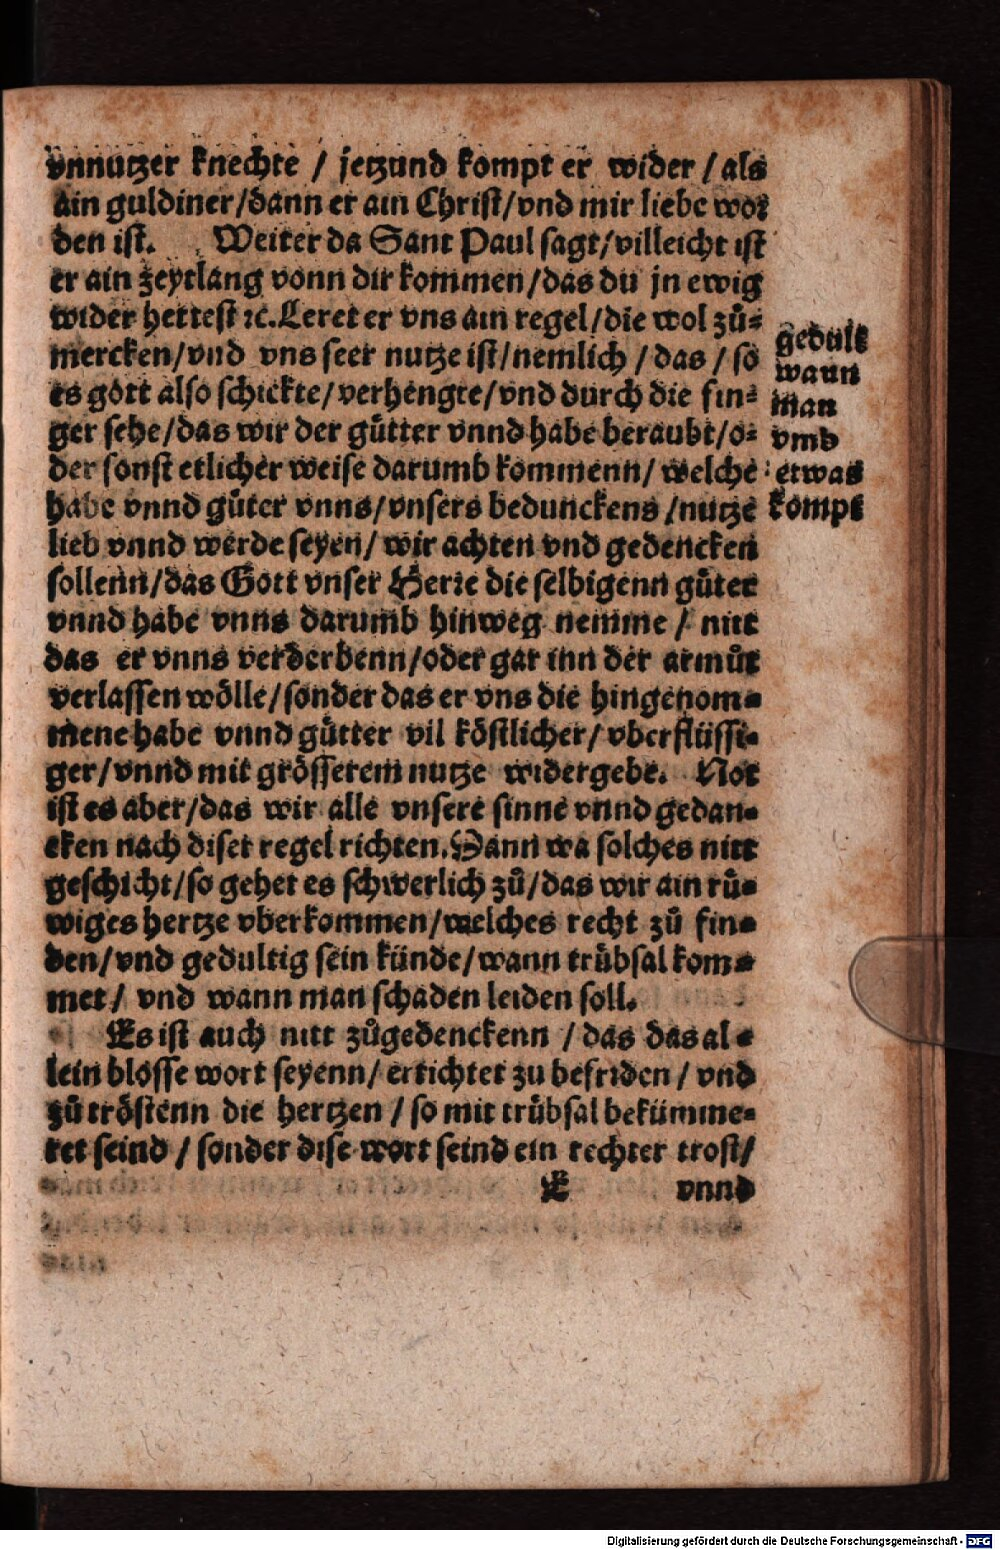 vnnutzer knechte / jetzund kompt er wider / als
ain guldiner/dann er ain Christ/vnd mir liebe wor
den ist. Weiter da Sant Paul sagt/villeicht ist
er ain zeytlang vonn dir kommen/das du jn ewig
wider hettest ꝛc. Leret er vns ain regel/die wol zů-
mercken/vnd vns seer nutze ist/nemlich / das / so
es gott also schickte/verhengte/vnd durch die fin-
ger sehe/das wir der gütter vnnd habe beraubt/o-
der sonst etlicher weise darumb kommenn/ welche
habe vnnd gůter vnns/vnsers bedunckens /nutze
lieb vnnd werde seyen/ wir achten vnd gedencken
sollenn/das Gott vnser Herre die selbigenn gůter
vnnd habe vnns darumb hinweg nemme / nitt
das er vnns verderbenn/oder gar inn der armůt
verlassen wölle/sonder das er vns die hingenom-
mene habe vnnd gütter vil köstlicher/ vberflüssi-
ger/vnnd mit grösserem nutze widergebe. Not
ist es aber/das wir alle vnsere sinne vnnd gedan-
cken nach diser regel richten. Dann wa solches nitt
geschicht/so gehet es schwerlich zů/das wir ain rů-
wiges hertze vberkommen/welches recht zů fin-
den/vnd gedultig sein künde/wann trübsal kom-
met / vnd wann man schaden leiden soll.
Es ist auch nitt zůgedenckenn / das das al-
lein blosse wort seyenn/ ertichtet zu befriden / vnd
zů tröstenn die hertzen / so mit trübsal bekümme-
ret seind / sonder dise wort seind ein rechter trost/
E vnnd
gedult
wann
man
vmb
etwas
kompt
Digitalisierung gefördert durch die Deutsche Forschungsgemeinschaft - DFG